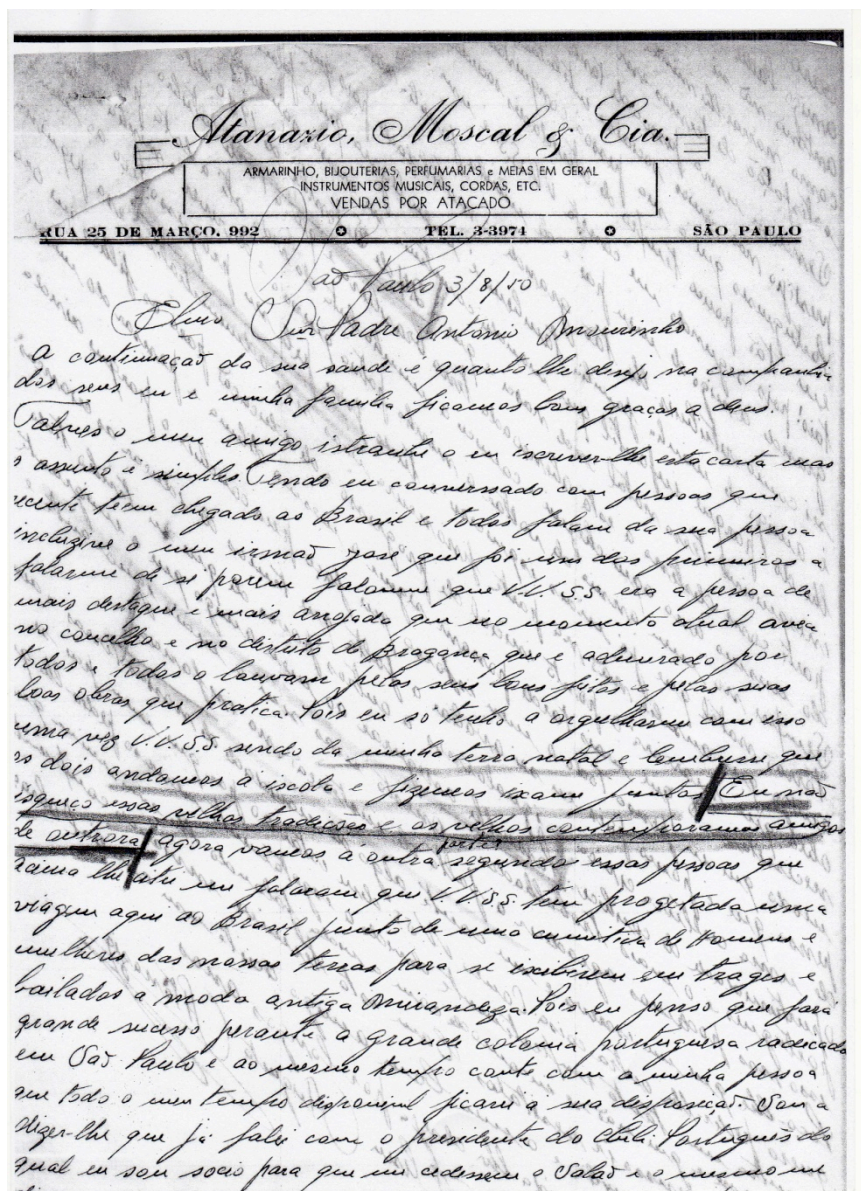 Atanazio, Moscal & Cia.
ARMARINHO, BIJOUTERIAS, PERFUMARIAS e MEIAS EM GERAL
INSTRUMENTOS MUSICAIS, CORDAS, ETC.
VENDAS POR ATACADO
RUA 25 DE MARÇO. 992 TEL. 3-3974 SÃO PAULO
São Paulo 3/8/50
Padre Antonio Mourinho
A continuaçaõ da sua saude é quanto lhe desejo na companhia
dos seus eu e minha familia ficamos bons graças a deus.
Talves o meu amigo istranhe o eu iscrever-lhe esta carta mas
o assunto é simples. Tendo eu conversado com pessoas que
recente teem chegado ao Brasil e todos falam da sua pessoa
incluzive o meu irmaõ José que foi um dos primeiros a
falarme de si porem faloume que V.V. S.S. era a pessoa de
mais destaque e mais arrojada que no momento atual avia
no concelho e no distrito de Bragança que é admirado por
todos e todos o louvam pelos seus bons feitos e pelas suas
boas obras que pratica. Pois eu só tenho a orgulharme com isso
uma vez V.V. S.S. sendo da minha terra natal e lembrome que
os dois andamos á iscola e fizemos ixame juntos Eu naõ
isqueço essas velhas tradicoes e os velhos contemporanios amigos
de outrora agora vamos á outra parte segundo essas pessoas que
acima lhe falaram que V.V.S.S. tem progetada uma
viagem aqui ao Brasil junto de uma cumitiva de Homens e
mulheres das nossas terras para se ixibirem em trages e
bailados a moda antiga Mirandeza. Pois eu penso que fará
grande sucesso perante a grande colonia portuguesa radicada
em Saõ Paulo e ao mesmo tempo conte com a minha pessoa
que todo o meu tempo disponivel ficará á sua disposiçaõ Vou a
dizer-lhe que já falei com o presidente do Club Português do
qual eu sou socio para que me cedessem o Salaõ e o mesmo me